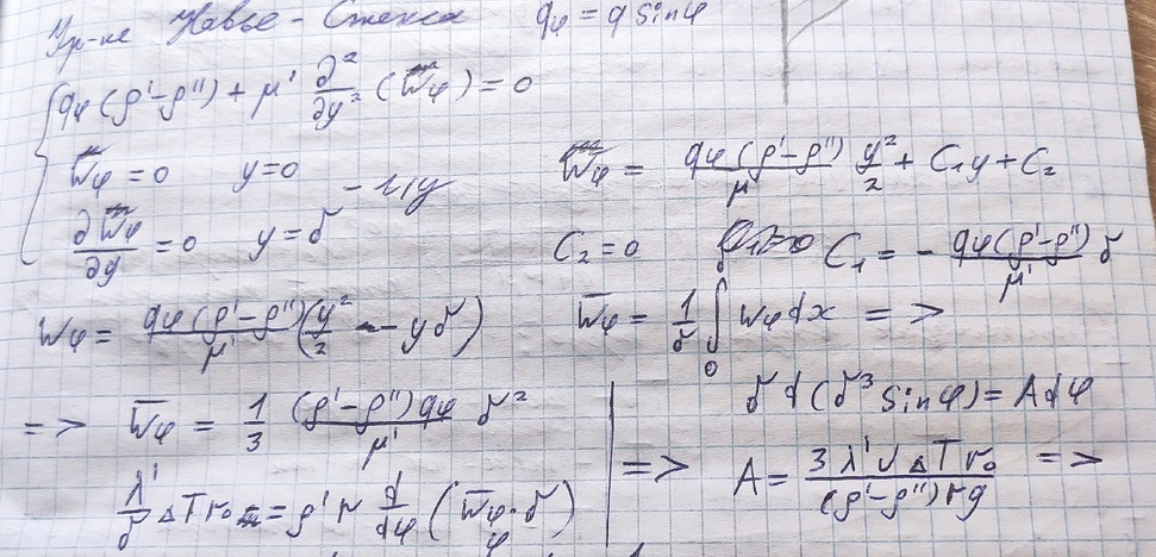 Ур-ие Навье-Стокса g_φ = g sinφ
g_φ(ρ'-ρ'') + μ' ∂²/∂y² (W_φ) = 0
W_φ = 0 y=0 W_φ = g_φ(ρ'-ρ'')/μ' y²/2 + C₁y + C₂
∂W_φ/∂y = 0 y=δ C₂=0 C₁ = - g_φ(ρ'-ρ'')/μ' δ
W_φ = g_φ(ρ'-ρ'')/μ' (y²/2 - yδ) W̅_φ = 1/δ ∫₀^δ W_φ dx =>
=> W̅_φ = 1/3 (ρ'-ρ'')g_φ/μ' δ²
λ'/δ ΔT r₀ = ρ' r d/dφ (W̅_φ·δ)
δ d(δ³ sinφ) = A dφ
=> A = 3λ'νΔT r₀/(ρ'-ρ'')rg =>